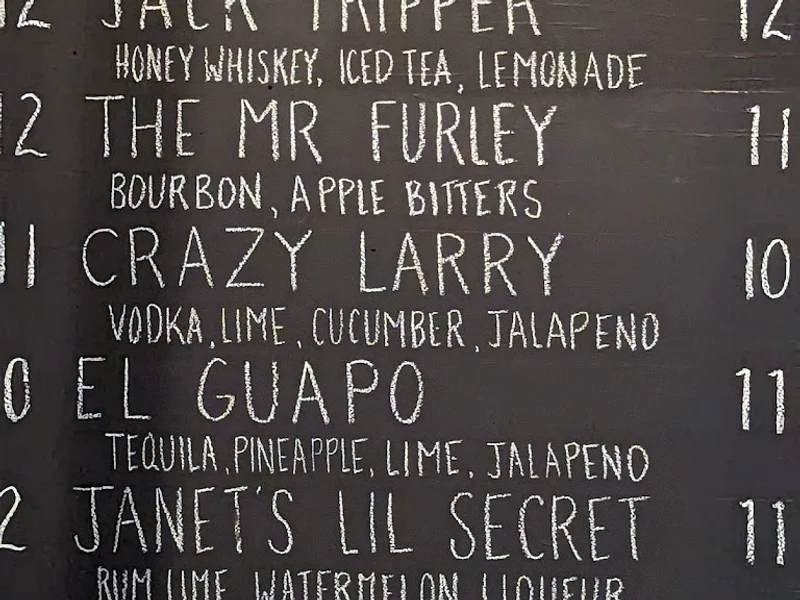 12 JACK TRIPPER 12
HONEY WHISKEY, ICED TEA, LEMONADE
12 THE MR FURLEY 11
BOURBON, APPLE BITTERS
11 CRAZY LARRY 10
VODKA, LIME, CUCUMBER, JALAPENO
0 EL GUAPO 11
TEQUILA, PINEAPPLE, LIME, JALAPENO
2 JANET'S LIL SECRET 11
RUM LIME, WATERMELON, LIQUEUR